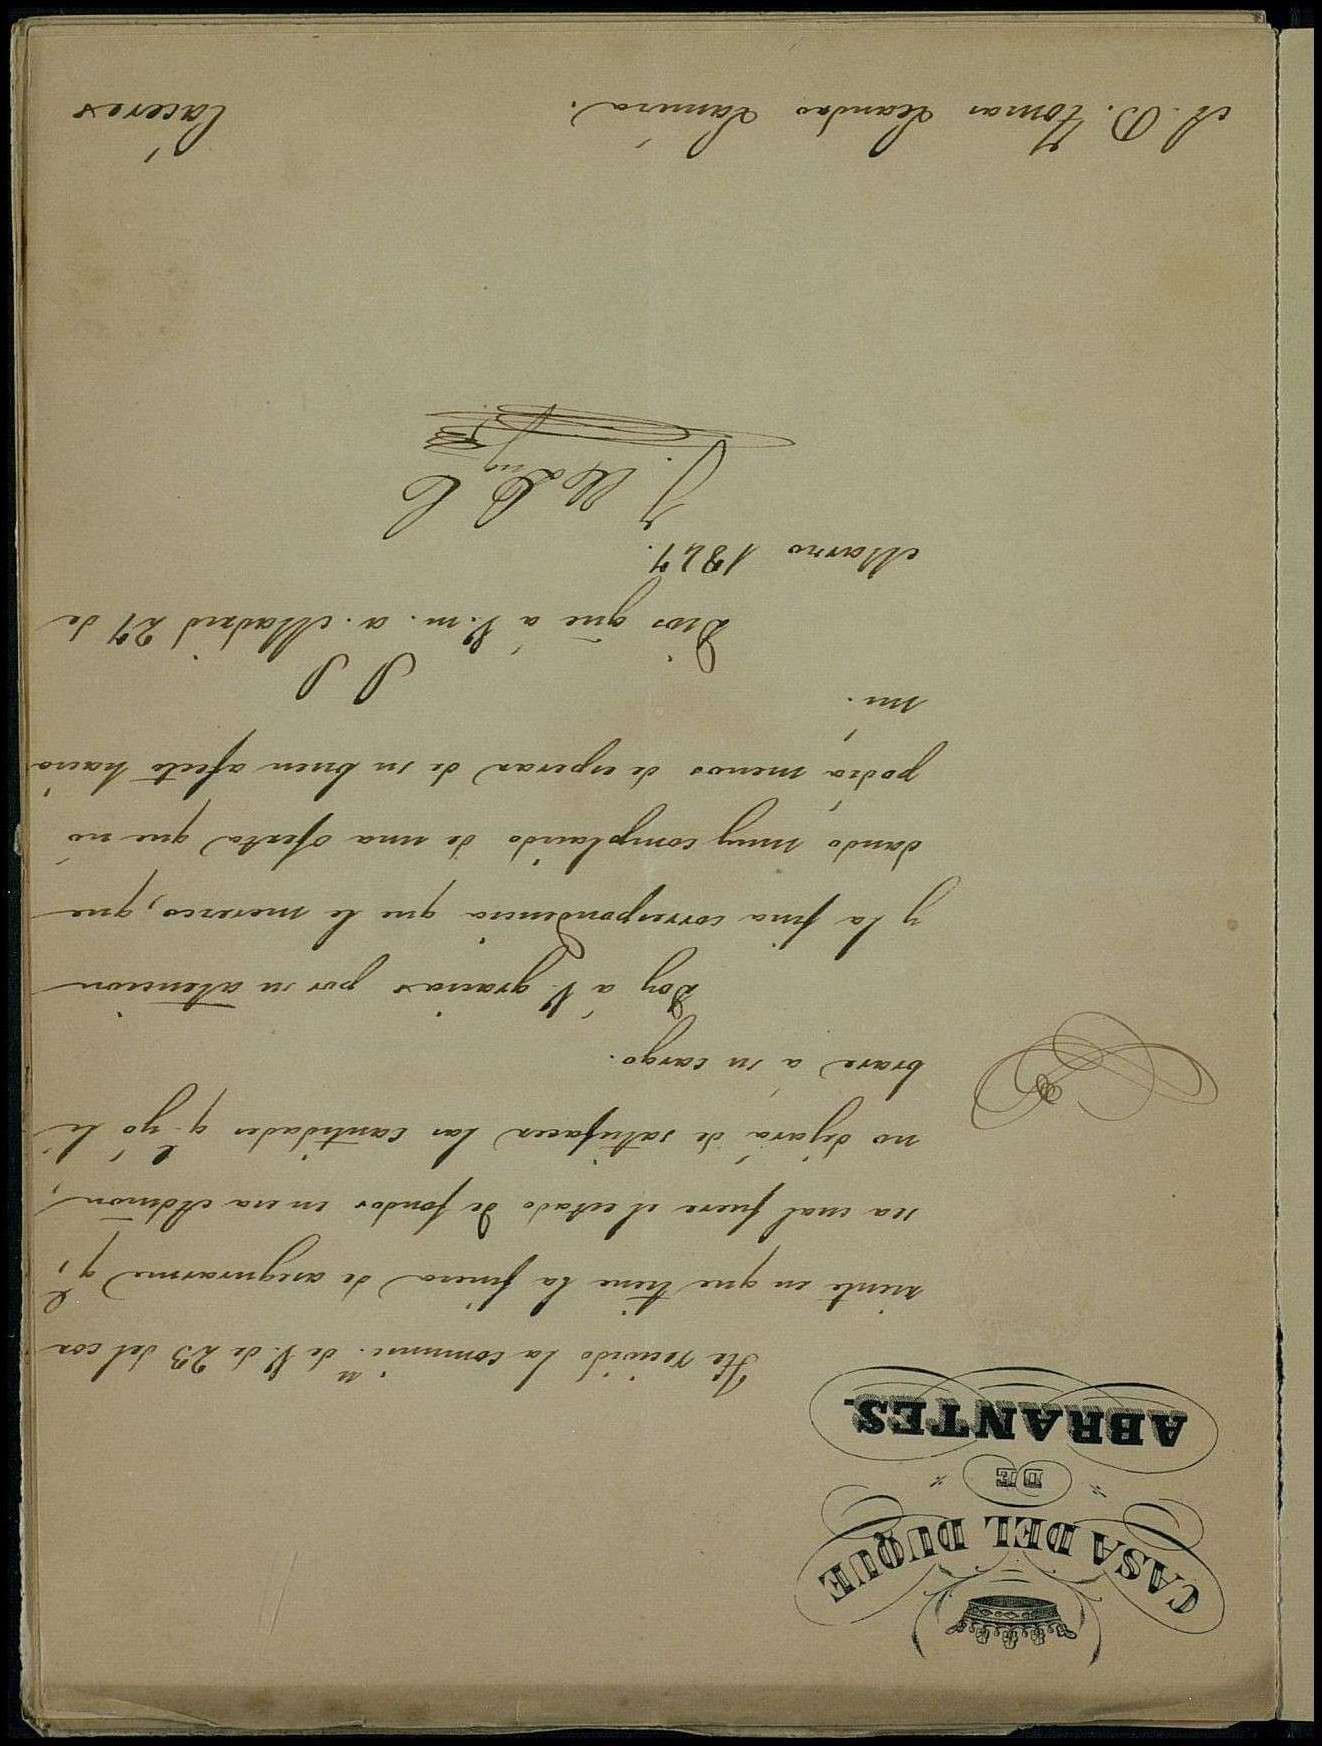 CASA DEL DUQUE
DE
ABRANTES.
He recivido la comunic.n de V. de 23 del cor
riente en que tiene la fineza de asegurarme q,
sea cual fuere el estado de fondos en esa Admon,
no dejará de satisfacer las cantidades q. yó li
brare á su cargo.
Doy á V. gracias por su atencion
y la fina correspondencia que le merezco, que
dando muy complacido de una oferta que nó
podia menos de esperar de su buen afecto hácia
mi.
Dios gue á V. m. a. Madrid 27 de
Marzo 1847.
A D. Tomas Leandro
Cáceres